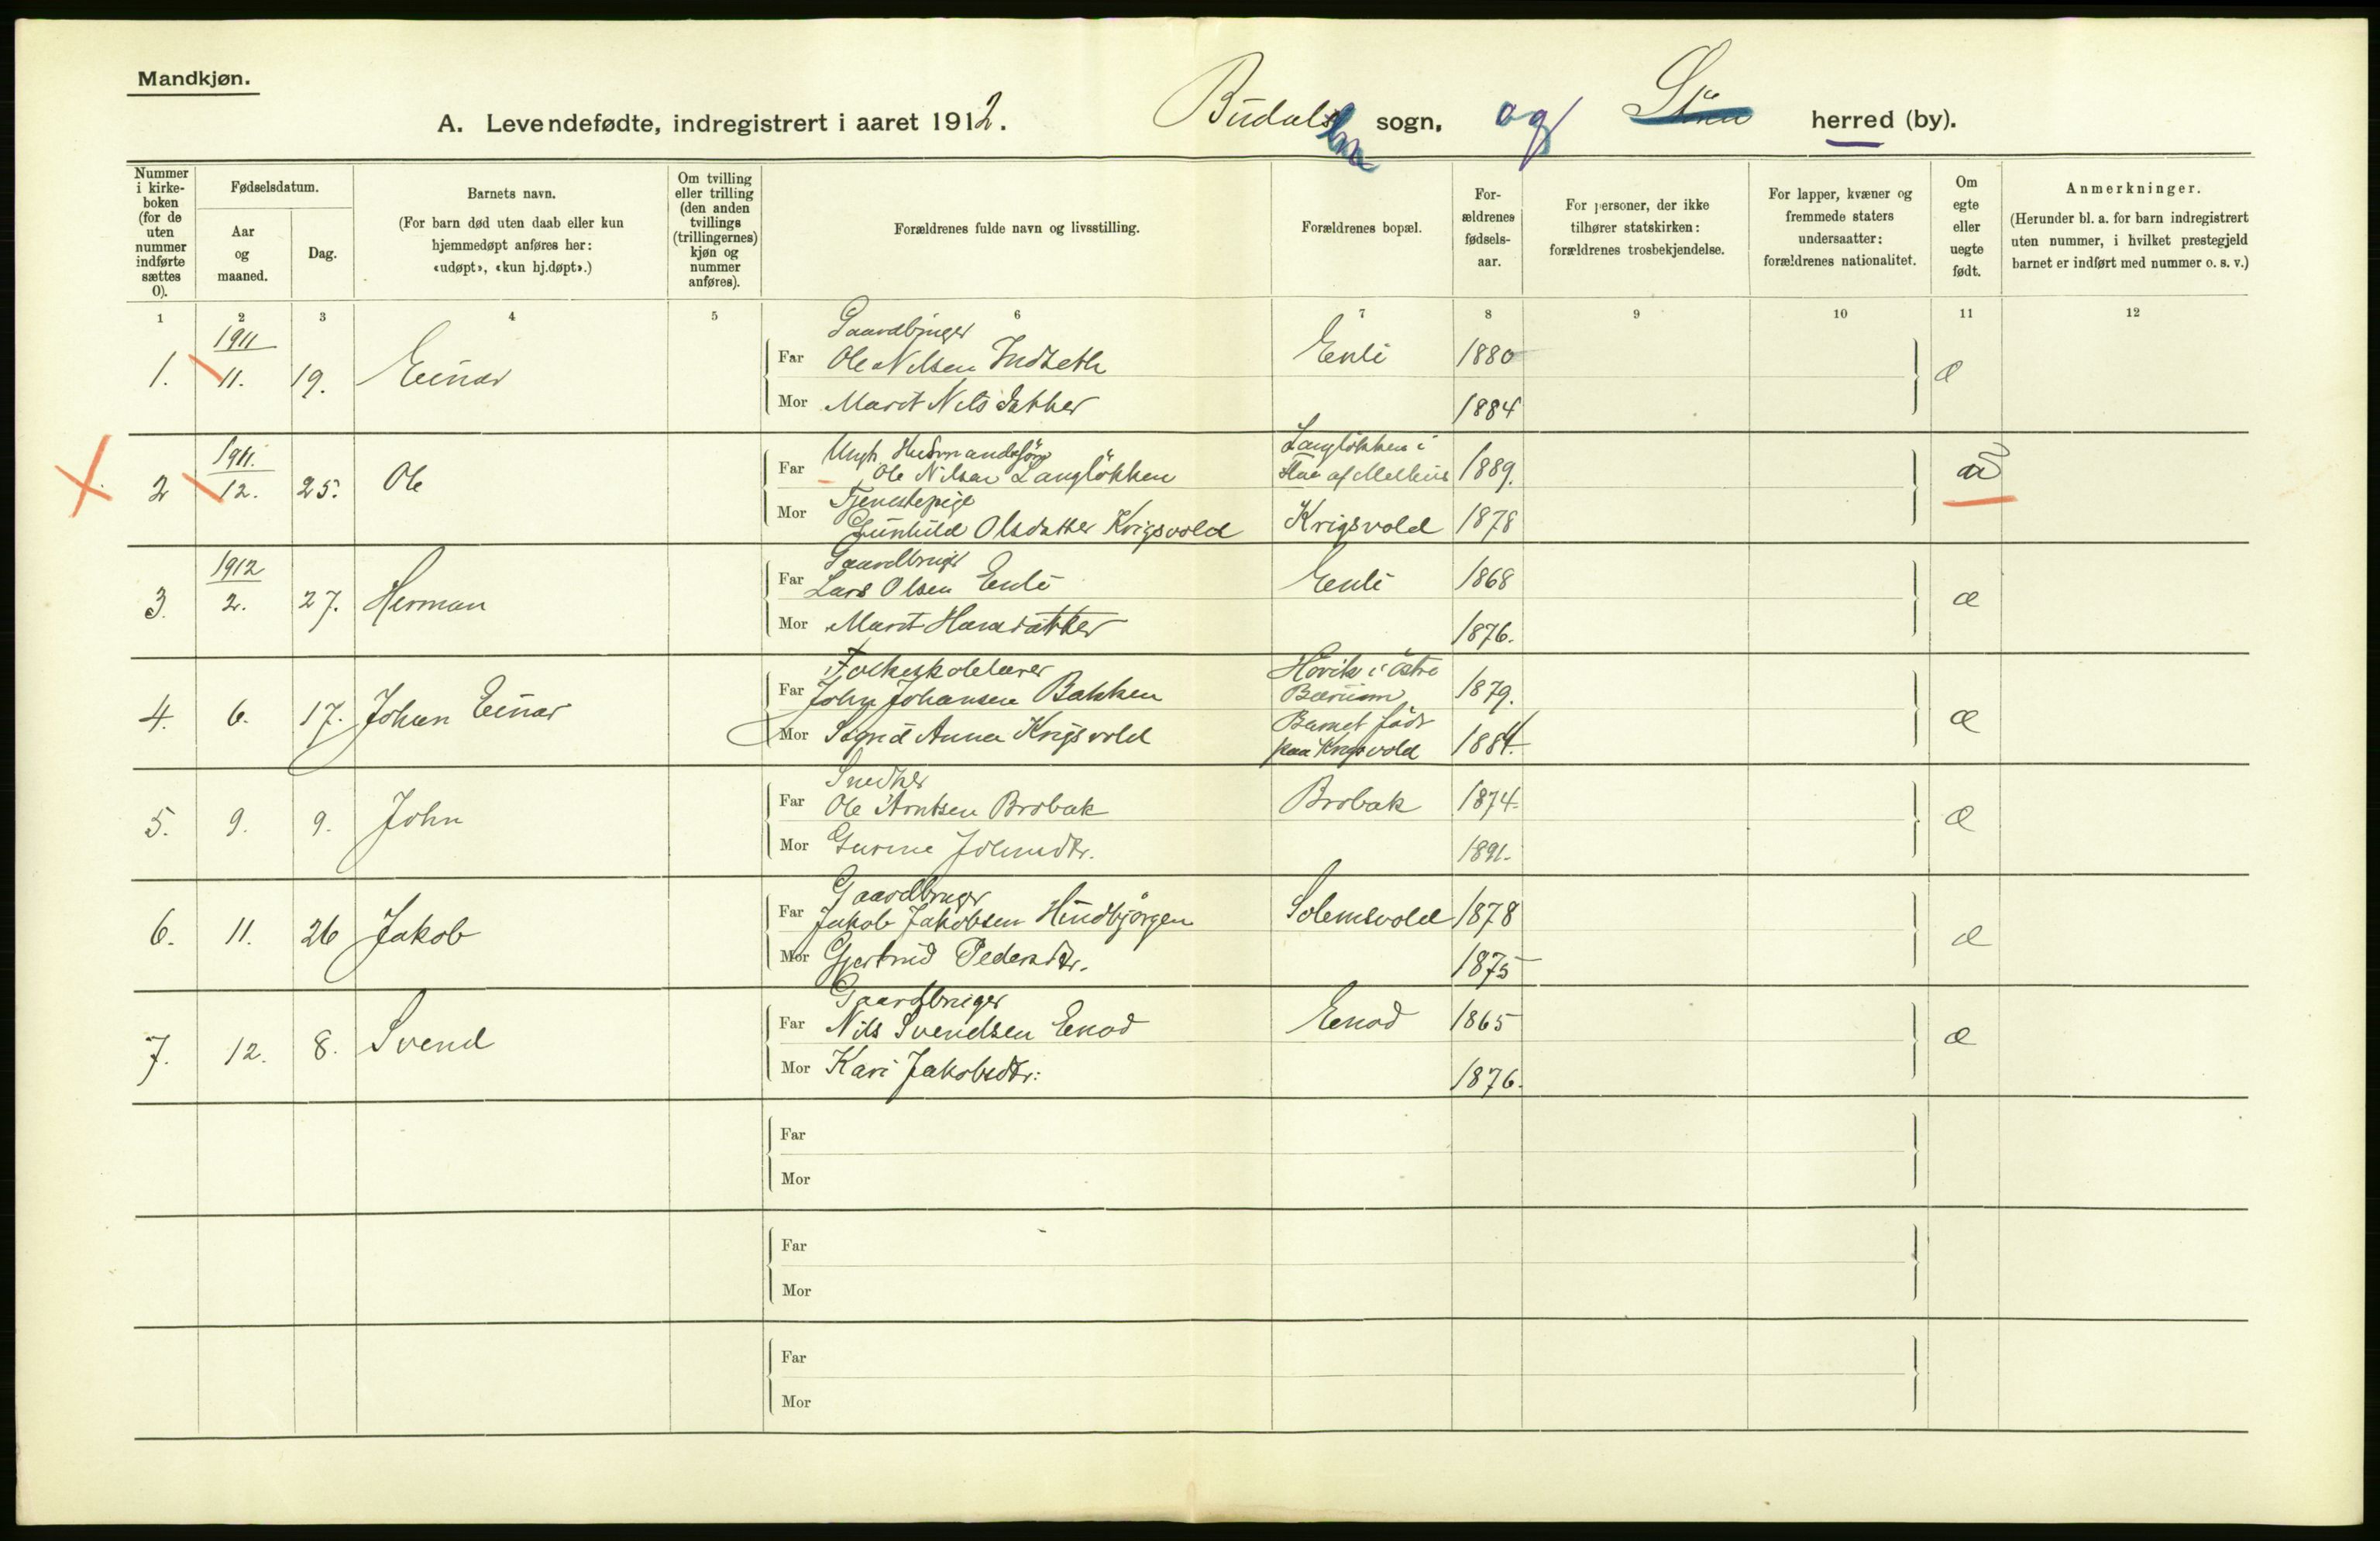 Mandkjøn.
A. Levendefødte, indregistrert i aaret 1912. Budals sogn, og Støren herred (by).
Nummer i kirke-boken (for de uten nummer indførte sættes 0).
Fødselsdatum.
Aar og maaned.
Dag.
Barnets navn.
(For barn død uten daab eller kun hjemmedøpt anføres her: «udøpt», «kun hj.døpt».)
Om tvilling eller trilling (den anden tvillings (trillingernes) kjøn og nummer anføres).
Forældrenes fulde navn og livsstilling.
Forældrenes bopæl.
For-ældrenes fødsels-aar.
For personer, der ikke tilhører statskirken: forældrenes trosbekjendelse.
For lapper, kvæner og fremmede staters undersaatter: forældrenes nationalitet.
Om egte eller uegte født.
Anmerkninger.
(Herunder bl. a. for barn indregistrert uten nummer, i hvilket prestegjeld barnet er indført med nummer o. s. v.)
1 2 3 4 5 6 7 8 9 10 11 12
1911 Gaardbruger
1. 11. 19. Einar Far Ole Nilsen Indseth Enli 1880 æ
Mor Marit Nilsdatter 1884
1911. Ungk. Husmandssøn Langløkken i
2 12. 25. Ole Far Ole Nilsen Langløkken af Melhus 1889.
Tjenestepige
Mor Gunhild Olsdatter Krigsvold Krigsvold 1878
1912 Gaardbruger
3. 2. 27. Herman Far Lars Olsen Enli Enli 1868 æ
Mor Marit Hansdatter 1876.
Folkeskolelærer Høvik i Østre
4. 6. 17. Johan Einar Far John Johansen Bakken Bærum 1879. æ
Barnet født
Mor Sigrid Anna Krigsvold paa Krigsvold 1884.
Snedker
5. 9. 9. John Far Ole Arntsen Brobak Brobak 1874. æ
Mor Gurine Johnsdtr. 1891.
Gaardbruger
6. 11. 26 Jakob Far Jakob Jakobsen Hindbjørgen Solemsvold 1878 æ
Mor Gjertrud Pedersdtr. 1875
Gaardbruger
7. 12. 8. Svend Far Nils Svendsen Enod Enod 1865 æ
Mor Kari Jakobsdtr: 1876.
Far
Mor
Far
Mor
Far
Mor